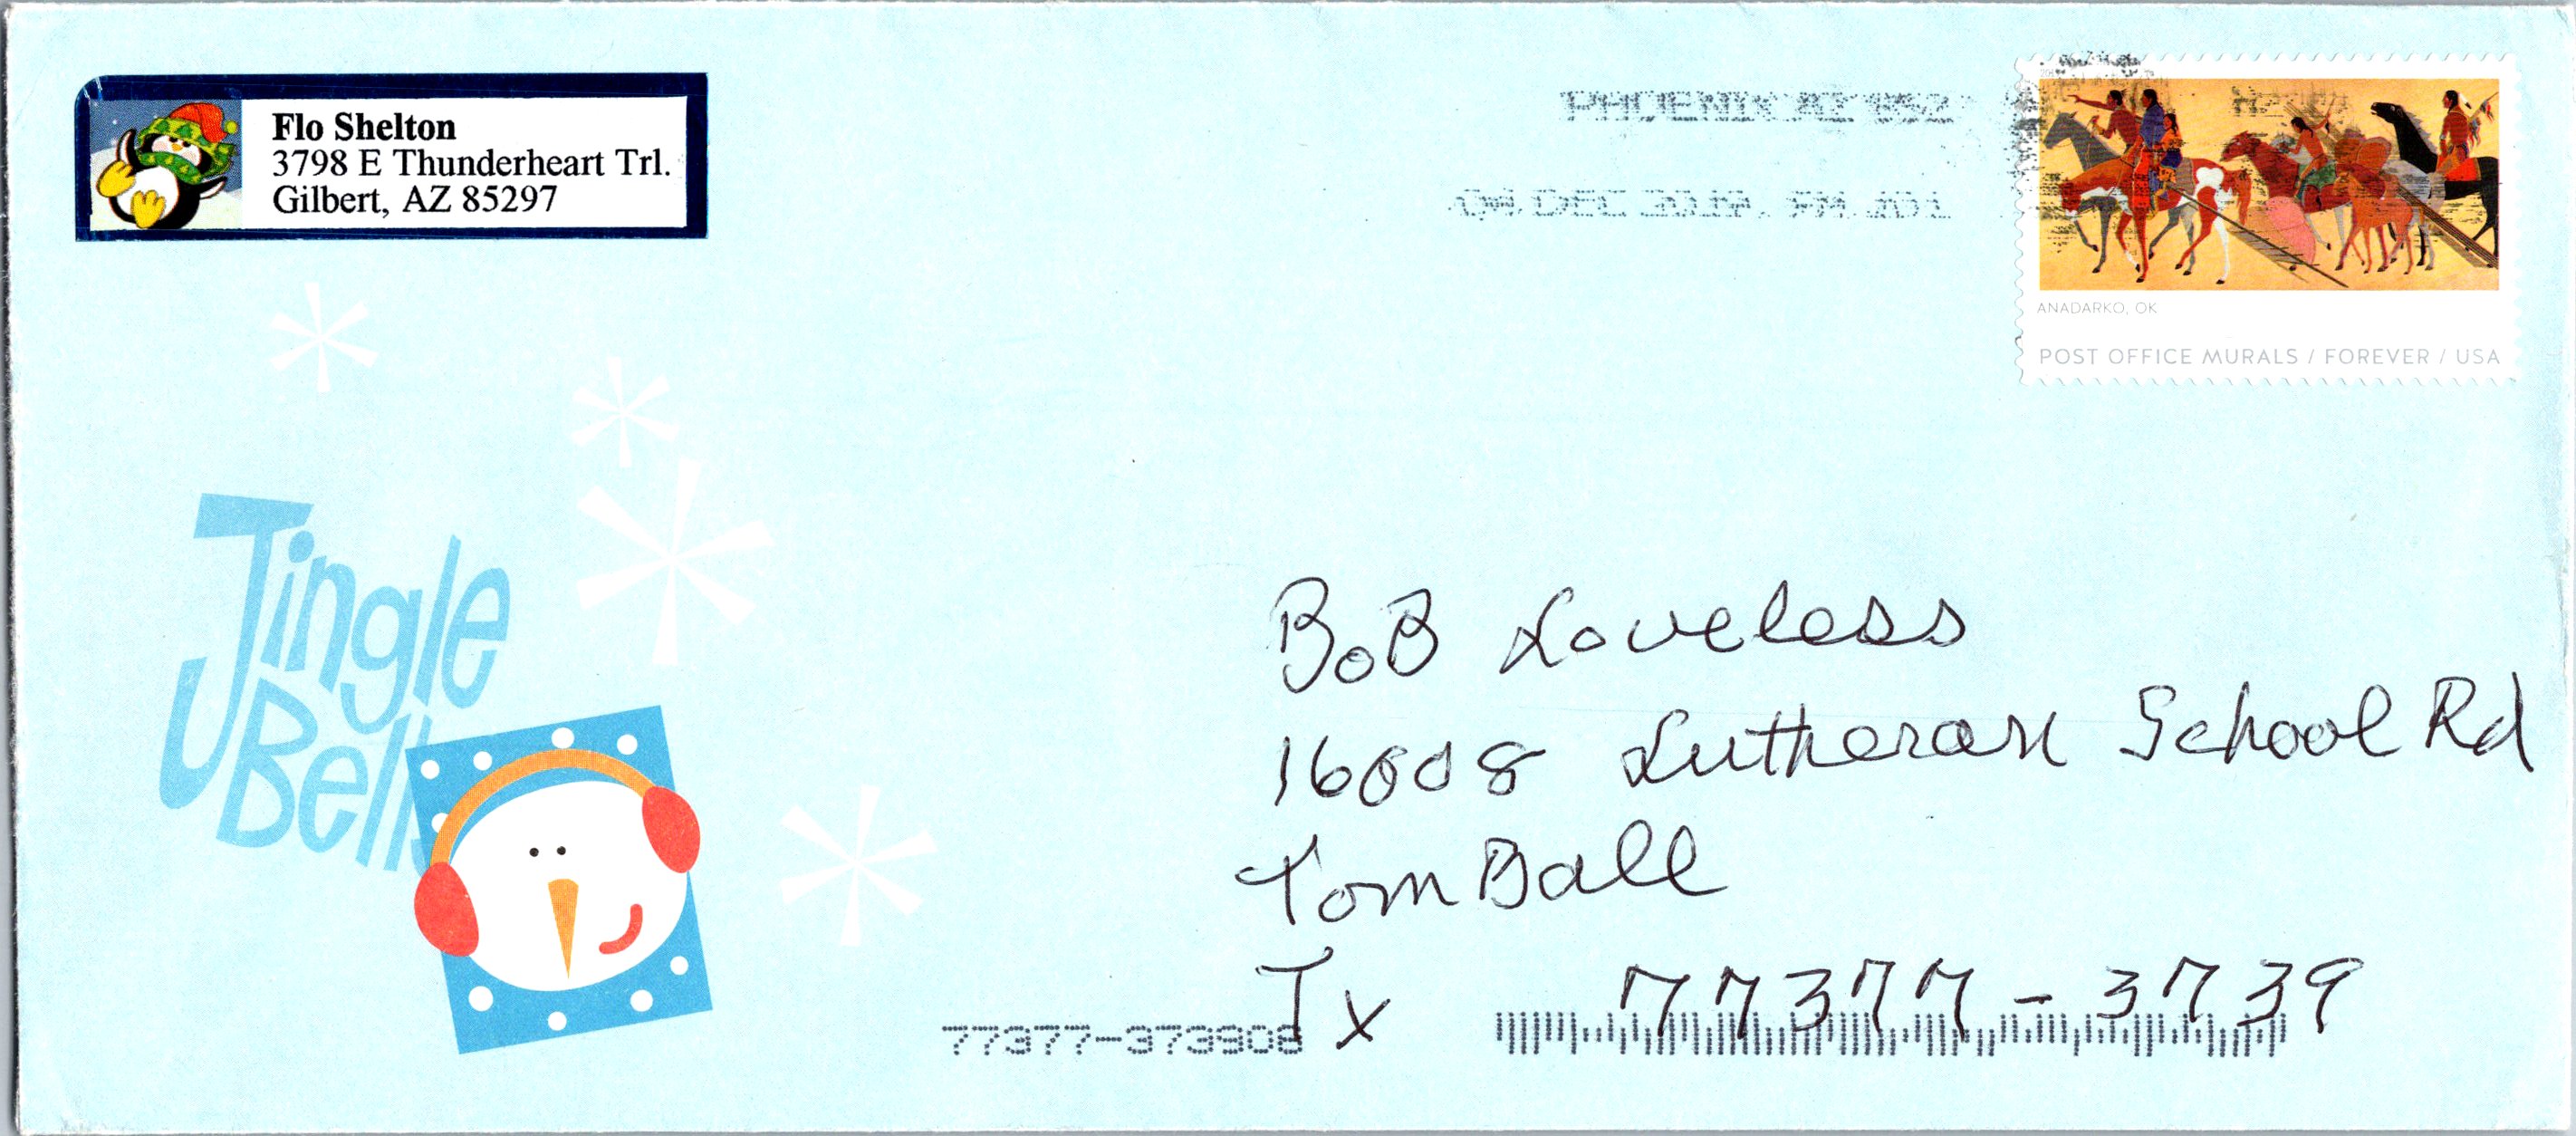 Flo Shelton
3798 E Thunderheart Trl.
Gilbert, AZ 85297
PHOENIX AZ 852
04 DEC 2019 PM
ANADARKO, OK
POST OFFICE MURALS / FOREVER / USA
Jingle
Bells
BoB Loveless
16008 Lutheran School Rd
TomBall
Tx 77377-3739
77377-373908